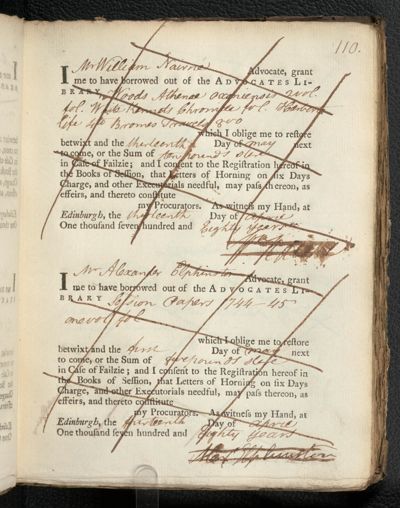 110.
I Mr William Nairne Advocate, grant
me to have borrowed out of the ADVOCATES LI-
BRARY Woods Athenae oxonienses 2 vol.
fol. White Kennets Chronicle fol.
Life 4to Bromes Travels 8vo
which I oblige me to restore
betwixt and the thirteenth Day of may next
to come, or the Sum of ten pounds
in Case of Failzie; and I consent to the Registration hereof in
the Books of Session, that Letters of Horning on six Days
Charge, and other Executorials needful, may pass thereon, as
effeirs, and thereto constitute
my Procurators. As witness my Hand, at
Edinburgh, the thirteenth Day of aprile
One thousand seven hundred and Eighty years
I Mr Alexander Elphinston Advocate, grant
me to have borrowed out of the ADVOCATES LI-
BRARY Session Papers 1744-45
one vol fol
which I oblige me to restore
betwixt and the first Day of may next
to come, or the Sum of five pounds
in Case of Failzie; and I consent to the Registration hereof in
the Books of Session, that Letters of Horning on six Days
Charge, and other Executorials needful, may pass thereon, as
effeirs, and thereto constitute
my Procurators. As witness my Hand, at
Edinburgh, the Day of aprile
One thousand seven hundred and Eighty years
Alex Elphinston